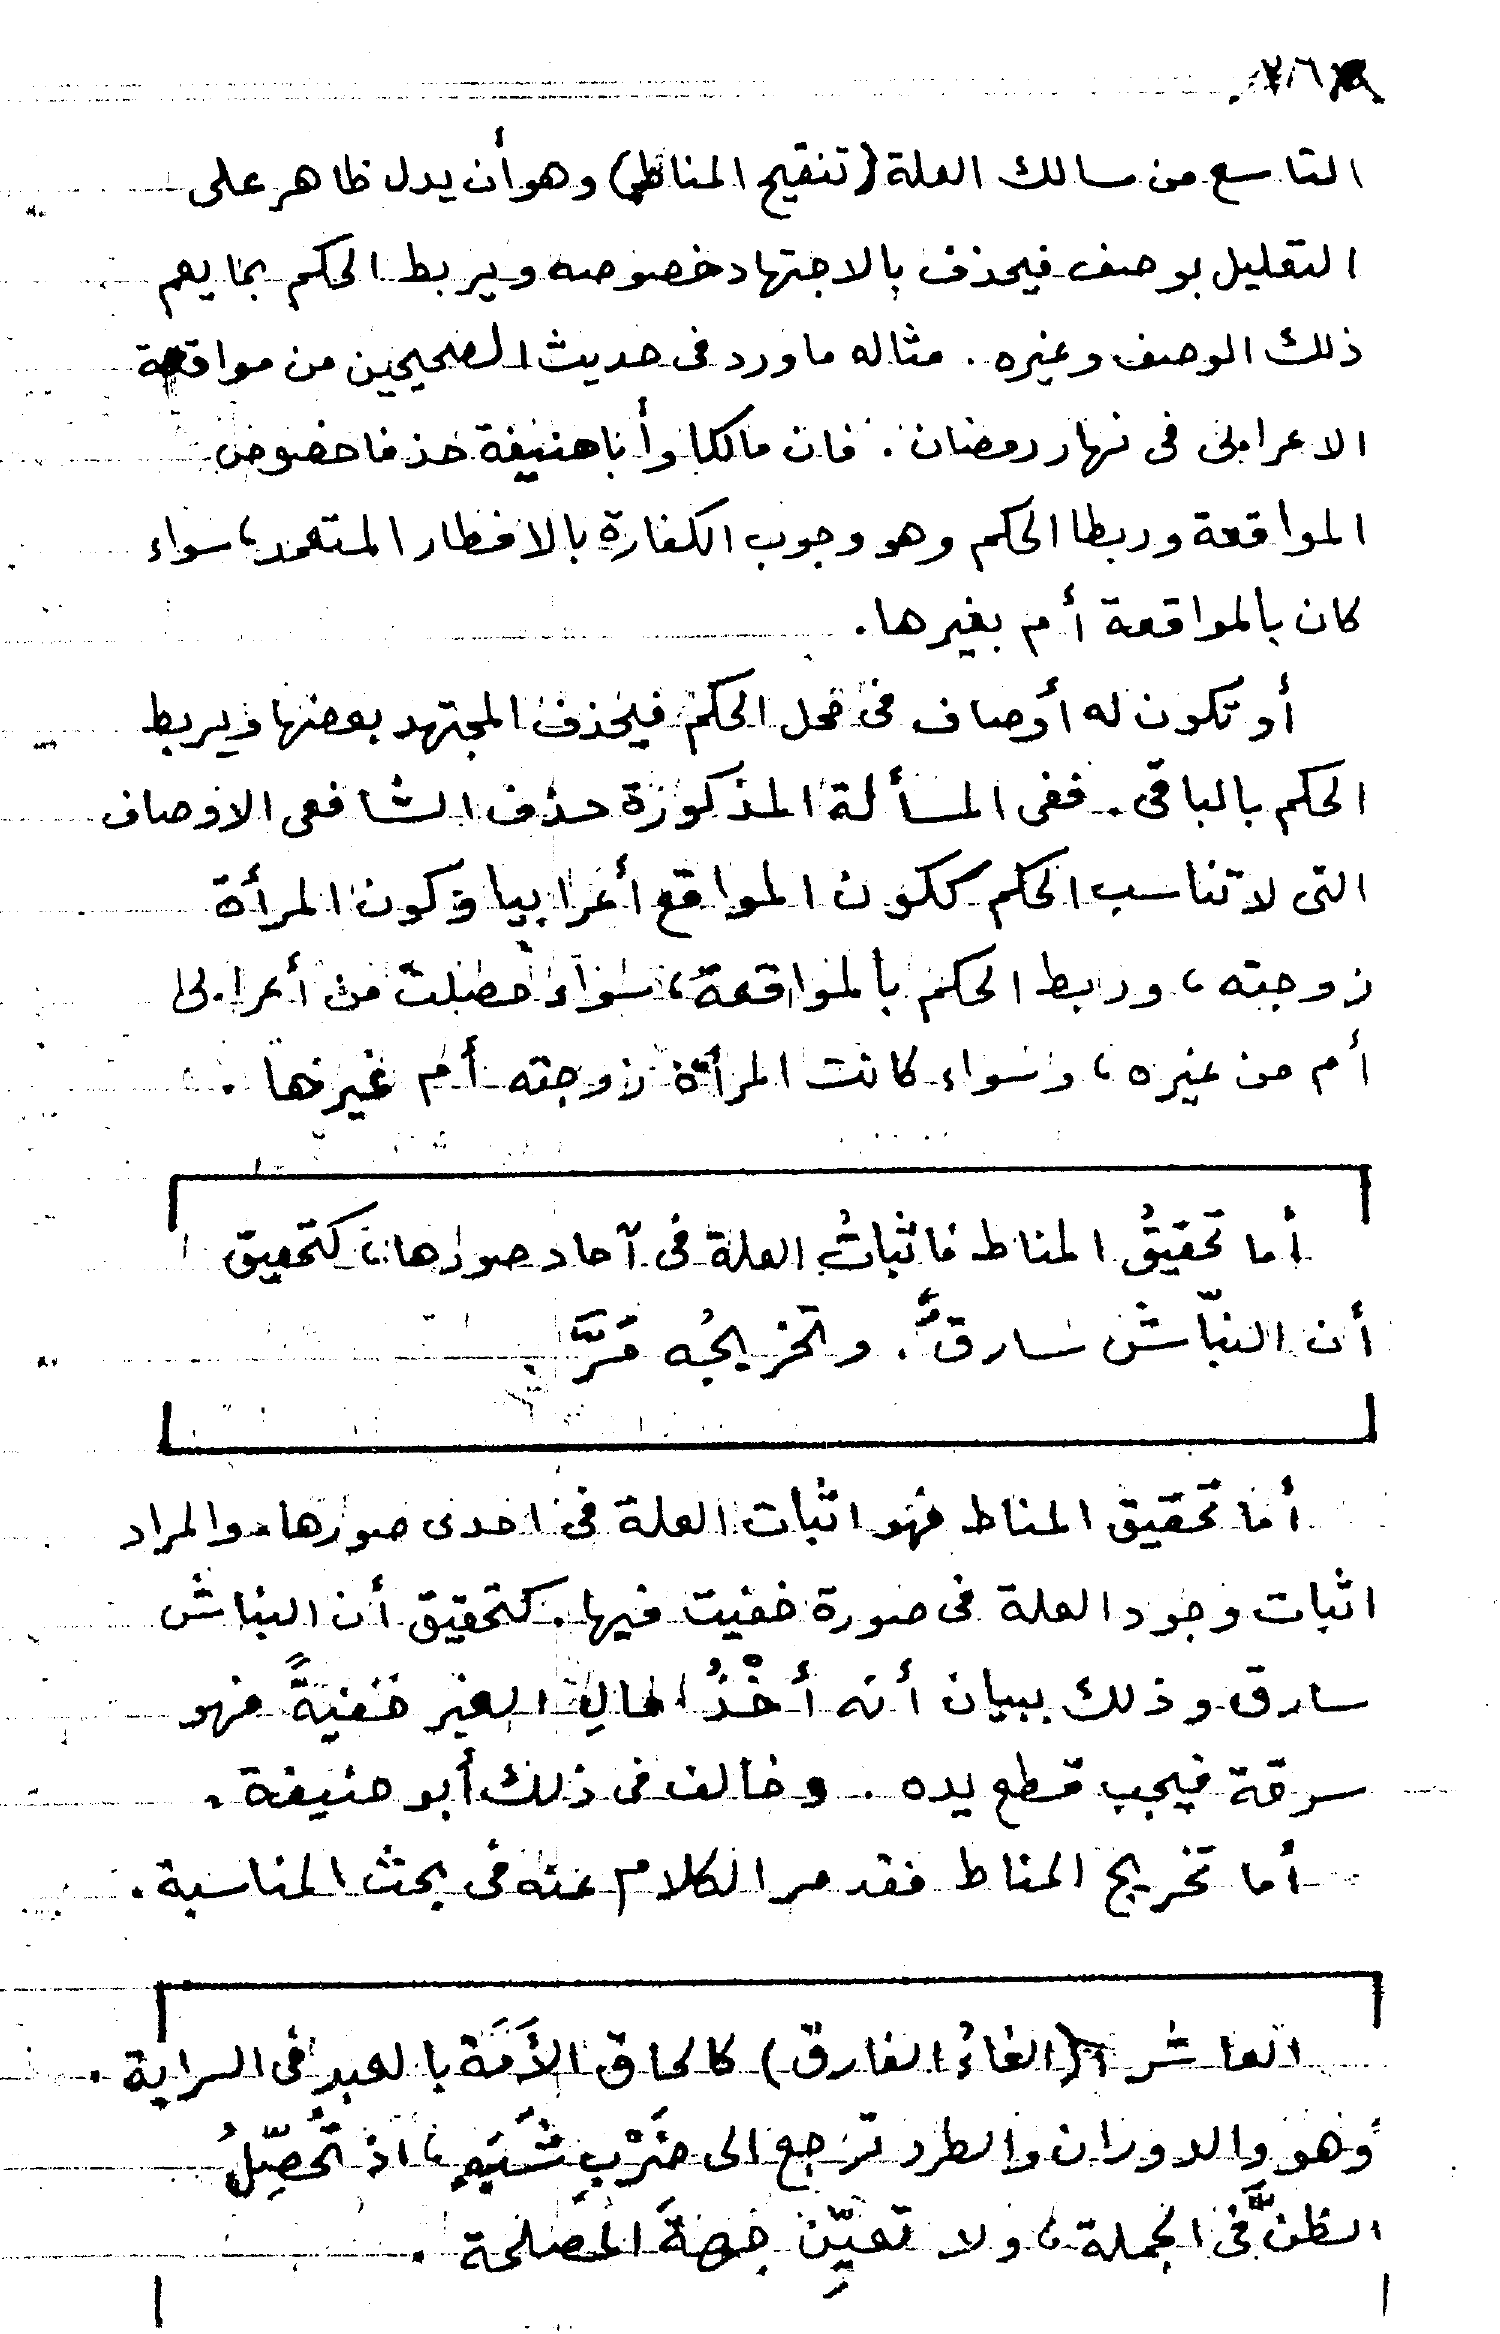 ٢٦
التاسع من مسالك العلة (تنقيح المناط) وهو أن يدل ظاهر على
التعليل بوصف فيحذف بالاجتهاد خصوصه ويربط الحكم بما يعم
ذلك الوصف وغيره. مثاله ما ورد فى حديث الصحيحين من مواقعة
الاعرابى فى نهار رمضان. فان مالكا وأبا حنيفة حذفا خصوص
المواقعة وربطا الحكم وهو وجوب الكفارة بالافطار المتعمد، سواء
كان بالمواقعة أم بغيرها.
أو تكون له أوصاف فى محل الحكم فيحذف المجتهد بعضها ويربط
الحكم بالباقى. ففى المسألة المذكورة حذف الشافعى الاوصاف
التى لا تناسب الحكم ككون المواقع أعرابيا وكون المرأة
زوجته، وربط الحكم بالمواقعة، سواء حصلت من أعرابى
أم من غيره، وسواء كانت المرأة زوجته أم غيرها.
أما تحقيقُ المناط فاثباتُ العلة فى آحاد صورها، كتحقيق
أن النبّاش سارقٌ. وتخريجُه مَرَّ.
أما تحقيق المناط فهو اثبات العلة فى احدى صورها. والمراد
اثبات وجود العلة فى صورة خفيت فيها. كتحقيق أن النباش
سارق وذلك ببيان أنه أخْذُ لمالِ الغير خفيةً فهو
سرقة فيجب قطع يده. وخالف فى ذلك أبو حنيفة.
أما تخريج المناط فقد مر الكلام عنه فى بحث المناسبة.
العاشر (الغاءُ الفارق) كالحاق الأَمَة بالعبد فى السراية.
وهو والدوران والطرد ترجع الى ضَرْبِ شَبَهٍ، اذ تُحَصِّلُ
الظنَّ فى الجملة، ولا تعيِّن جهةَ المصلحة.